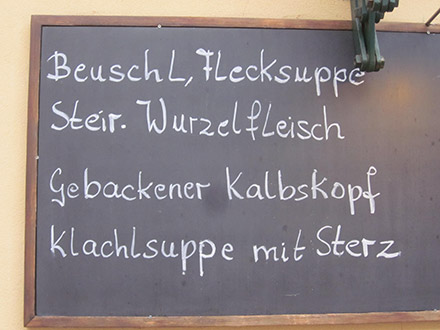 Beuschl, Flecksuppe
Steir. Wurzelfleisch
Gebackener Kalbskopf
Klachlsuppe mit Sterz